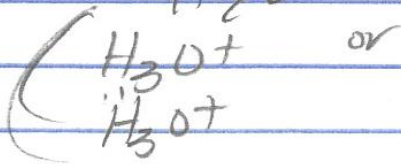 H₃O+ or
H₃O+